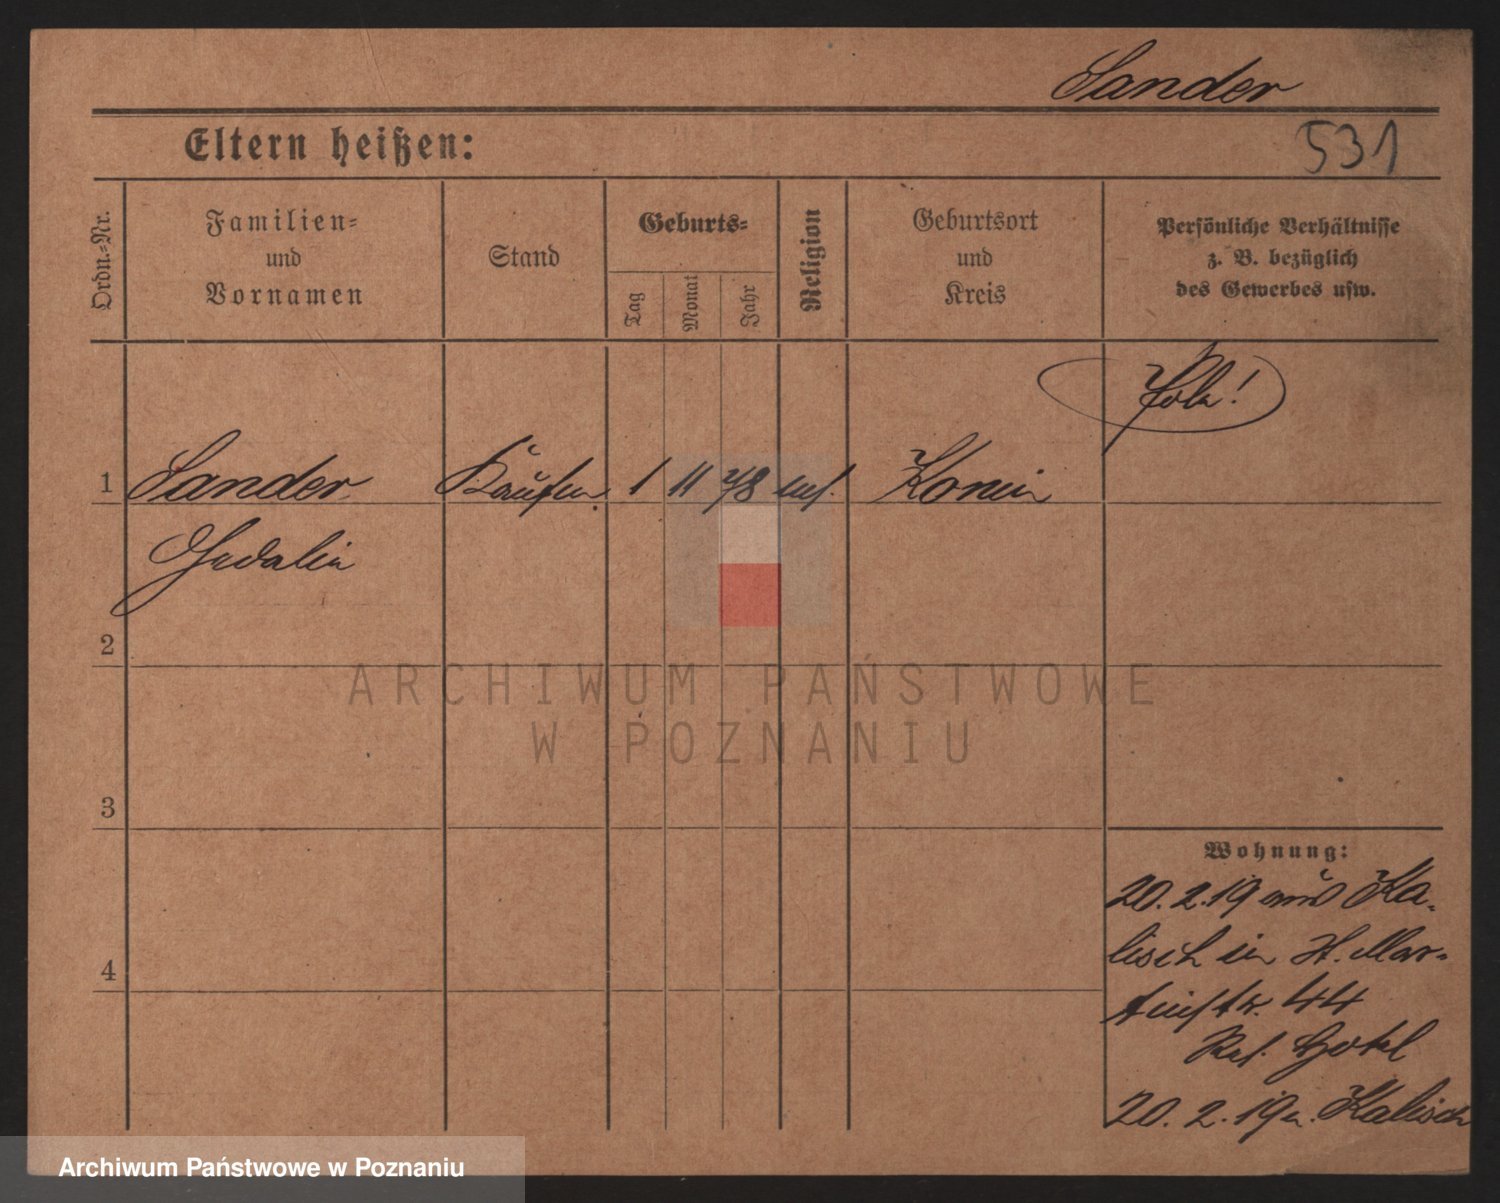 Sander
Eltern heißen:
531
Ordn.-Nr.
Familien-
und
Vornamen
Stand
Geburts-
Tag
Monat
Jahr
Religion
Geburtsort
und
Kreis
Persönliche Verhältnisse
z. B. bezüglich
des Gewerbes usw.
Pole!
1 Sander Kaufm. 1 11 78 Konin
Gedalie
2
3
4
Wohnung:
20.2.19 aus Ka-
lisch in St. Mar-
tinstr. 44
Hotel
20.2.19 n. Kalisch
ARCHIWUM PAŃSTWOWE
W POZNANIU
Archiwum Państwowe w Poznaniu